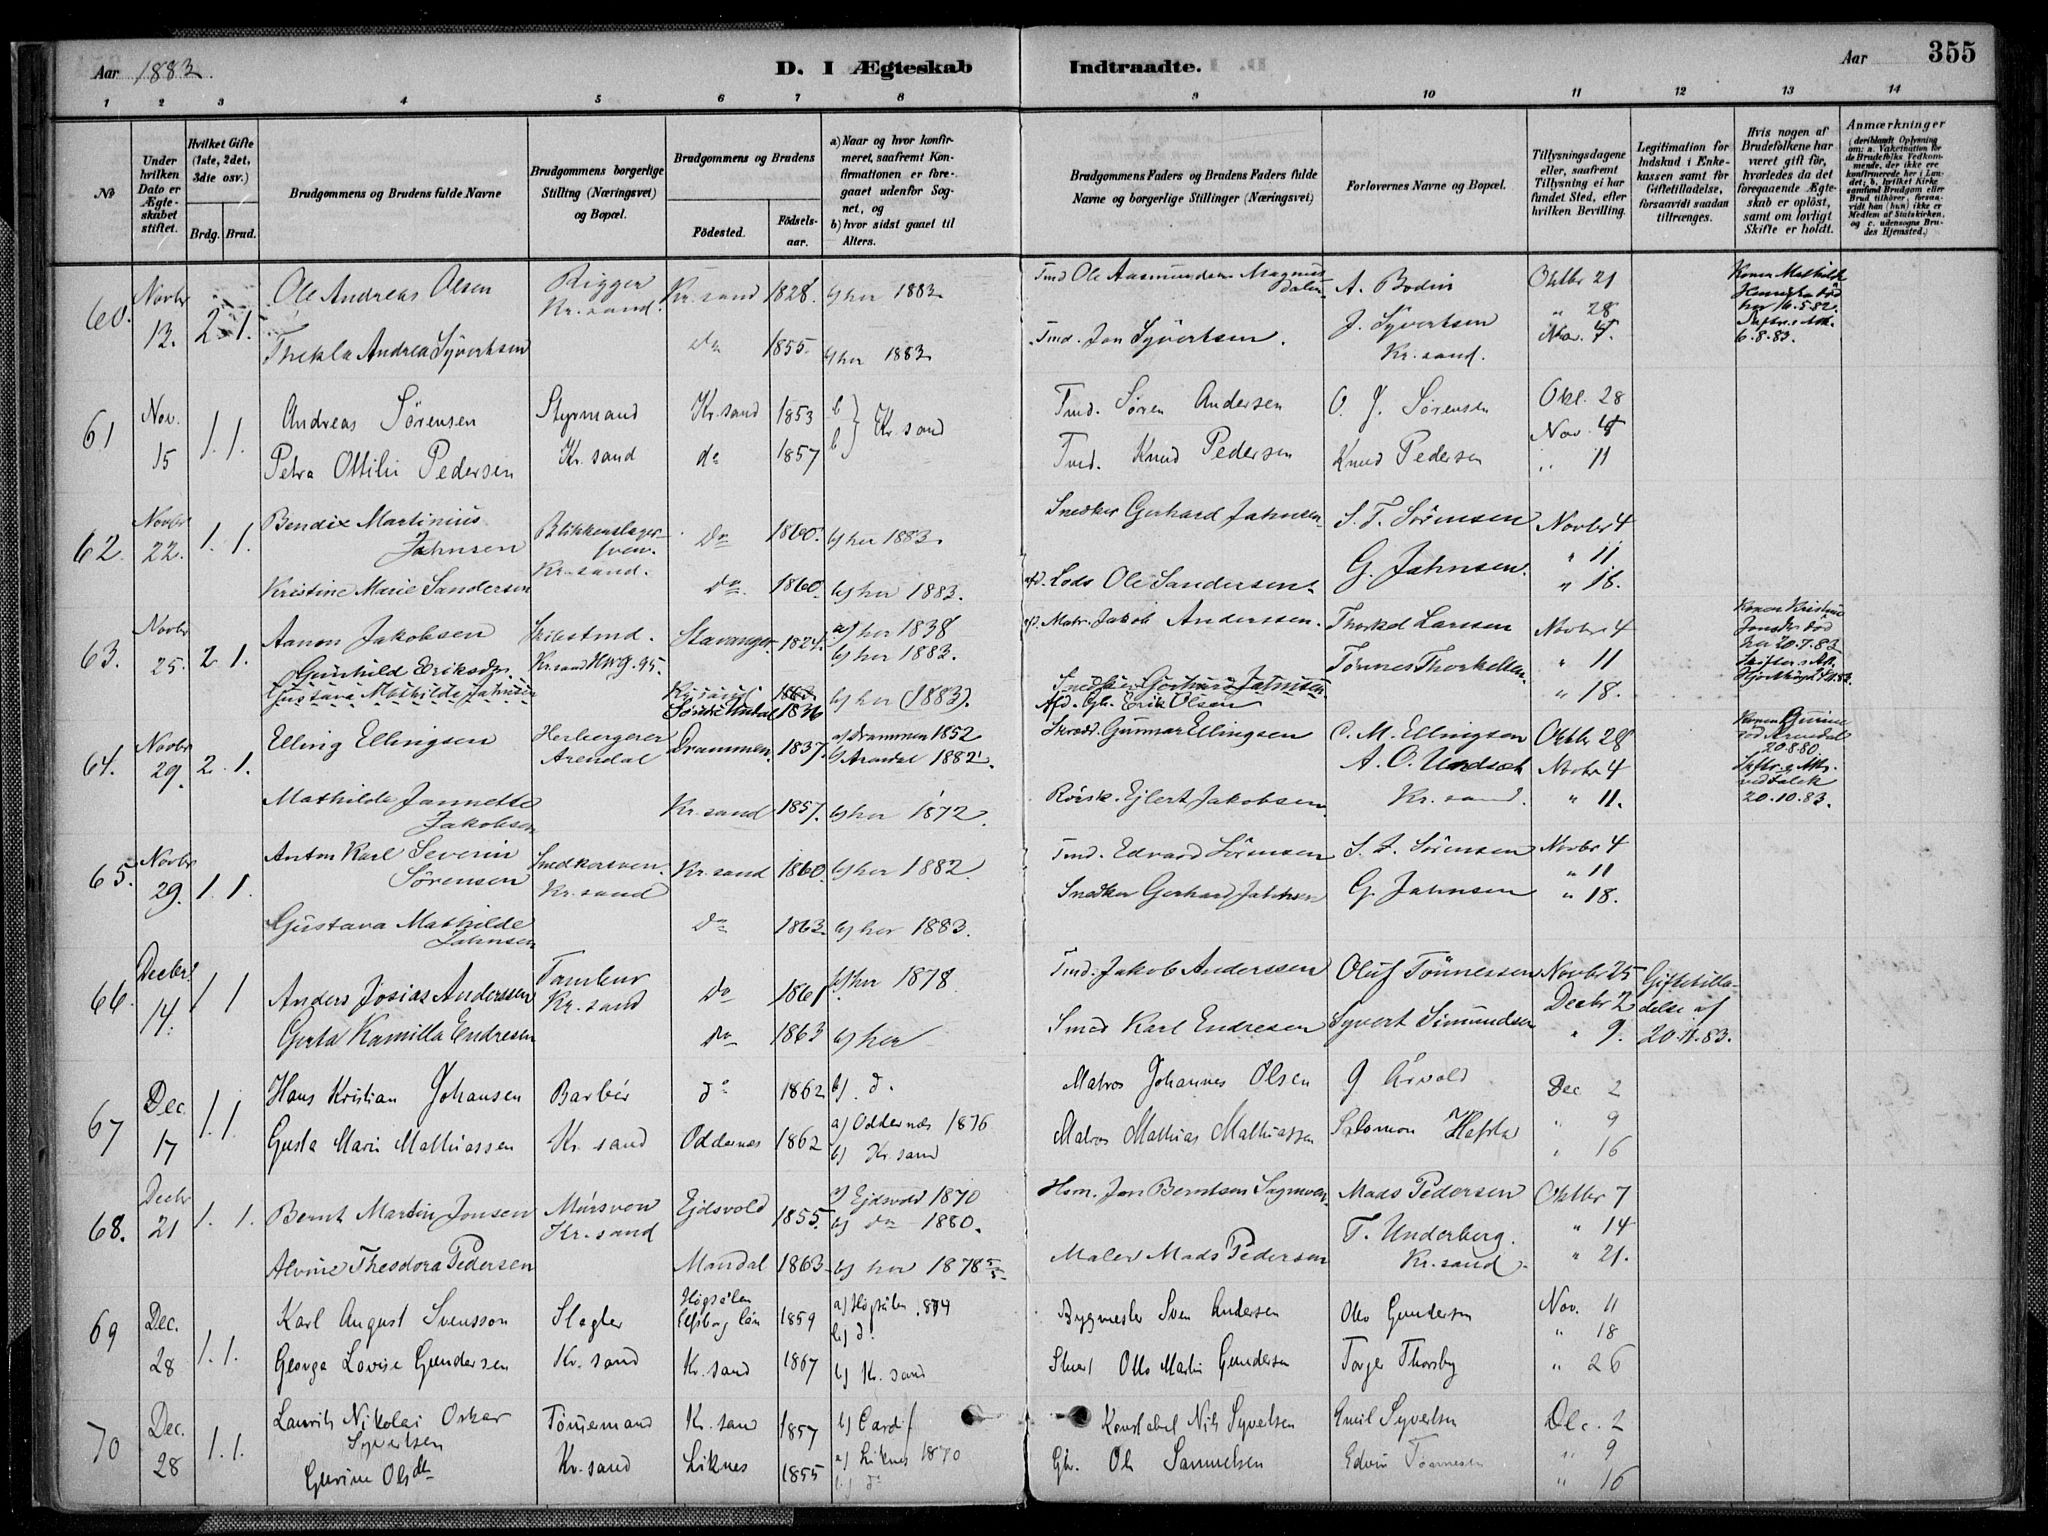 Aar 1883. D. I Ægteskab Indtraadte. Aar 355
1 2 3 4 5 6 7 8 9 10 11 12 13 14
№
Under hvilken Dato er Ægteskabet stiftet.
Hvilket Gifte (1ste, 2det, 3die osv.)
Brdg. Brud.
Brudgommens og Brudens fulde Navne
Brudgommens borgerlige Stilling (Næringsvei) og Bopæl.
Brudgommens og Brudens
Födested. Födselsaar.
a) Naar og hvor konfirmeret, saafremt Konfirmationen er foregaaet udenfor Sognet, og
b) hvor sidst gaaet til Alters.
Brudgommens Faders og Brudens Faders fulde Navne og borgerlige Stillinger (Næringsvei)
Forlovernes Navne og Bopæl.
Tillysningsdagene eller, saafremt Tillysning ei har fundet Sted, efter hvilken Bevilling.
Legitimation for Indskud i Enkekassen samt for Giftetilladelse, forsaavidt saadan tiltrænges.
Hvis nogen af Brudefolkene har været gift för, hvorledes da det foregaaende Ægteskab er oplöst, samt om lovligt Skifte er holdt.
Anmærkninger
(deriblandt Oplysning om: a. Vakcination for de Brudefolks Vedkommende, der ikke ere konfirmerede her i Landet; b. hvilket Kirkesamfund Brudgom eller Brud tilhörer, forsaavidt han (hun) ikke er Medlem af Statskirken, og c. udensogns Brudes Hjemsted.)
60. Novbr 13. 2. 1. Ole Andreas Olsen Rigger Kr.sand. Kr.sand 1828. b) her 1883. Tmd Ole Aasmundsen Magnusdalen A. Bodin Oktbr 21
" 28
Thekla Andrea Syvertsen do 1855. b) her 1883. Tmd. Jon Syvertsen. J. Syvertsen Kr.sand. Nov. 4.
6.8.83.
61 Nov. 15 1. 1. Andreas Sörensen Styrmand Kr.sand Kr.sand 1853 b Kr.sand Tmd. Sören Andersen O. J. Sörensen Okt. 28
Nov. 4
Petra Ottilie Pedersen do 1857 b Tmd. Knud Pedersen Knud Pedersen " 11
62. Novbr 22. 1. 1. Bendix Martinius Jahnsen Blikkenslagersven. Kr.sand. do 1860. b) her 1883. Snedker Gerhard Jahnsen S. T. Sörensen Novbr 4
" 11
Kristine Marie Sandersen do. 1860. b) her 1883. afd. Lods Ole Sandersen. G. Jahnsen. " 18.
63. Novbr 25. 2. 1. Aanon Jakobsen Skibstmd. Kr.sand Stavanger. 1824. a) her 1838 b) her 1883. Matr. Jakob Anderssen. Thorkel Larssen Novbr 4
Gunhild Eriksdtr. Söndre Undal 1836 Afd. Gbr. Erik Olsen Tönnes Thorkelsen. " 11
Gustava Mathilde Jahnsen Kr.sand 1863. b) her (1883). Snedker Gerhard Jahnsen " 18.
64. Novbr 29. 2. 1. Elling Ellingsen Herbergerer Arendal Drammen. 1837. a) Drammen 1852 b) Arendal 1882. Skræd. Gunnar Ellingsen C. M. Ellingsen Oktbr 28
A. O. Undseth Novbr 4
Mathilde Jannette Jakobsen Kr.sand 1857. b) her 1872. Ejlert Jakobsen. Kr.sand. " 11. 20.10.83.
65. Novbr 29. 1. 1. Anton Karl Severin Sörensen Snedkersven. Kr.sand Kr.sand 1860. b) her 1882. Tmd. Edvard Sörensen S. T. Sörensen Novbr 4
" 11
Gustava Mathilde Jahnsen do 1863. b) her 1883. Snedker Gerhard Jahnsen G. Jahnsen " 18.
66. Decbr 14. 1 1 Anders Josias Anderssen Tambur Kr.sand do 1861 b) her 1878. Tmd. Jakob Anderssen Oluf Tönnessen Novbr 25 Giftetilladelse af 20.11.83.
Decbr 2
Gerta Kamilla Endresen do 1863 b) her Smed Karl Endresen Syvert Simundsen " 9.
67 Dec. 17 1. 1. Hans Kristian Johansen Barber Kr. sand do 1862 b). d. Matros Johannes Olsen G Årvold Dec 2
" 9
Gusta Marie Mathiassen Oddernes 1862 a) Oddernæs 1876 b) Kr.sand Matros Mathias Mathiassen Salomon Hefste " 16
68. Decbr 21 1. 1. Bernt Martin Jonsen Mursven Kr.sand Ejdsvold 1855. a) Ejdsvold 1870 b) do 1880. Hsm. Jon Berntsen Mads Pedersen Oktbr 7
" 14
Alvine Theodora Pedersen Mandal 1863 b) her 1878 Maler Mads Pedersen T. Underberg. Kr.sand. " 21.
69 Dec. 28 1. 1. Karl August Svensson Slagter Kr.sand Elfsborg län 1859 a) 1874 b) d. Bygmester Sven Andersen Olev Gundersen Nov. 11
" 18
George Lovise Gundersen Kr.sand 1867 b) Kr.sand Otto Martin Gundersen Torger Thorsby " 26
70 Dec. 28 1. 1. Laurits Nikolai Oskar Syvertsen Tömmermand Kr.sand Kr.sand 1857 b) Cardif Konstabel Nils Syvertsen Emil Syvertsen Dec. 2
" 9
Gurine Olsdtr Liknes 1855 a) Liknes 1870 b) do Gbr. Ole Samuelsen Edvin Tönnesen " 16